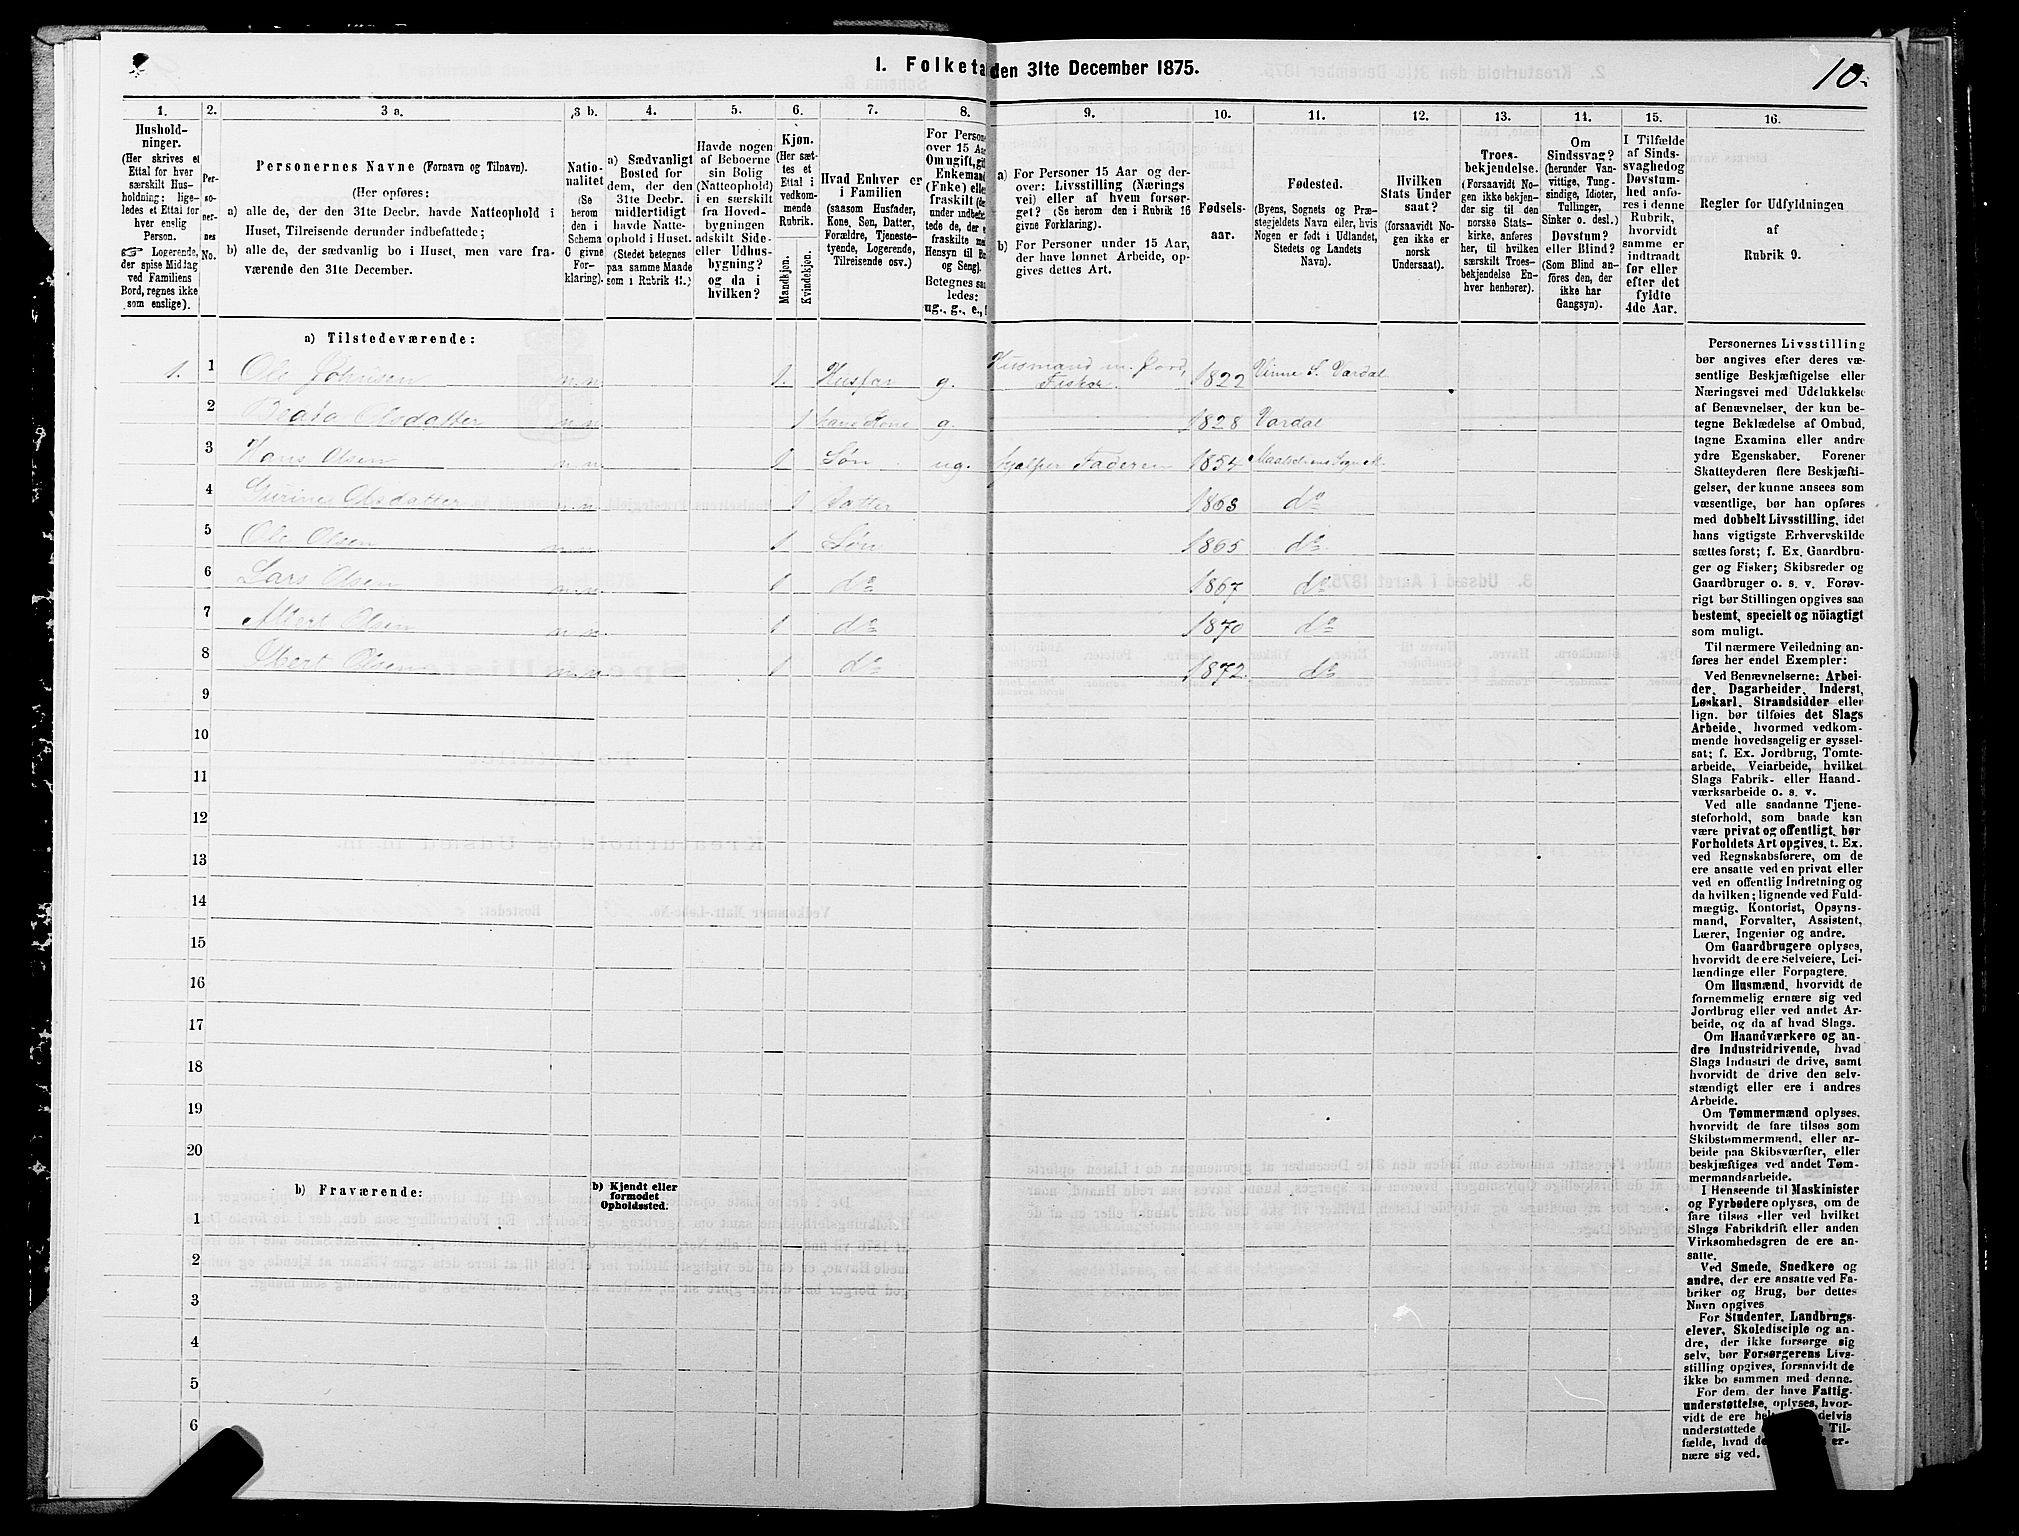 1. Folketa den 31te December 1875.
10.
1. 2. 3 a. 3 b. 4. 5. 6. 7. 8. 9. 10. 11. 12. 13. 14. 15. 16.
Hushold-
ninger.
(Her skrives et
Ettal for hver
særskilt Hus-
holdning; lige-
ledes et Ettal for
hver enslig
Person.
☞ Logerende,
der spise Middag
ved Familiens
Bord, regnes ikke
som enslige).
Per-
so-
ner-
nes
No.
Personernes Navne (Fornavn og Tilnavn).
(Her opføres:
a) alle de, der den 31te Decbr. havde Natteophold i
Huset, Tilreisende derunder indbefattede;
b) alle de, der sædvanlig bo i Huset, men vare fra-
værende den 31te December.
Natio-
nalitet
(Se
herom
den i
Schema
C givne
For-
klaring).
a) Sædvanligt
Bosted for
dem, der den
31te Decbr.
midlertidigt
havde Natte-
ophold i Huset.
(Stedet betegnes
paa samme Maade
som i Rubrik 11.)
Havde nogen
af Beboerne
sin Bolig
(Natteophold)
i en særskilt
fra Hoved-
bygningen
adskilt Side-
eller Udhus-
bygning?
og da i
hvilken?
Kjøn.
(Her sæt-
tes et
Ettal i
vedkom-
mende
Rubrik.
Mandkjøn.
Kvindekjøn.
Hvad Enhver er
i Familien
(saasom Husfader,
Kone, Søn, Datter,
Forældre, Tjeneste-
tyende, Logerende,
Tilreisende osv.).
For Persone
over 15 Aar
Om ugift, gif
Enkemand
(Enke) elle
fraskilt (de
under indbefa
tede de, der e
fraskilte me
Hensyn til Bo
og Seng).
Betegnes saa
ledes:
ug., g., e., f
a) For Personer 15 Aar og der-
over: Livsstilling (Nærings
vei) eller af hvem forsør-
get? (Se herom den i Rubrik 16
givne Forklaring).
b) For Personer under 15 Aar,
der have lønnet Arbeide, op-
gives dettes Art.
Fødsels-
aar.
Fødested.
(Byens, Sognets og Præ-
stegjeldets Navn eller, hvis
Nogen er født i Udlandet,
Stedets og Landets
Navn).
Hvilken
Stats Under
saat?
(forsaavidt No-
gen ikke er
norsk
Undersaat).
Troes-
bekjendelse.
(Forsaavidt No-
gen ikke bekjen-
der sig til den
norske Stats-
kirke, anføres
her, til hvilken
særskilt Troes-
bekjendelse En-
hver henhører).
Om
Sindssvag?
(herunder Van-
vittige, Tung-
sindige, Idioter,
Tullinger,
Sinker o. desl.)
Døvstum?
eller Blind?
(Som Blind an-
føres den, der
ikke har
Gangsyn).
I Tilfælde
af Sinds-
svaghed og
Døvstum-
hed anfø-
res i denne
Rubrik,
hvorvidt
samme er
indtraadt
før eller
efter det
fyldte
4de Aar.
Regler for Udfyldningen
af
Rubrik 9.
a) Tilstedeværende:
1. 1 Ole Johnsen n.n. 1. Husfar g. Husmand m. Jord, Fisker. 1822 Vinne S. Værdal
2 Beata Olsdatter n.n. 1 hans Kone g. 1828 Værdal
3 Hans Olsen n.n. 1 Søn ug. hjælper Faderen 1854 Maalselvens Sogn
4 Olsdatter n.n. 1 Datter 1863 do
5 Ole Olsen n.n. 1 Søn 1865 do
6 Lars Olsen n.n. 1 do 1867 do
7 Albert Olsen n.n. 1 do 1870 do
8 Olsen n.n. 1 do 1872. do
9
10
11
12
13
14
15
16
17
18
19
20
b) Fraværende:
b) Kjendt eller
formodet
Opholdssted.
1
2
3
4
5
6
Personernes Livsstilling
bør angives efter deres væ-
sentlige Beskjæftigelse eller
Næringsvei med Udelukkelse
af Benævnelser, der kun be-
tegne Beklædelse af Ombud,
tagne Examina eller andre
ydre Egenskaber. Forener
Skatteyderen flere Beskjæfti-
gelser, der kunne ansees som
væsentlige, bør han opføres
med dobbelt Livsstilling, idet
hans vigtigste Erhvervskilde
sættes først; f. Ex. Gaardbru-
ger og Fisker; Skibsreder og
Gaardbruger o. s. v. Forøv-
rigt bør Stillingen opgives saa
bestemt, specielt og nöiagtigt
som muligt.
Til nærmere Veiledning an-
føres her endel Exempler:
Ved Benævnelserne: Arbei-
der, Dagarbeider, Inderst,
Løskarl, Strandsidder eller
lign. bør tilføies det Slags
Arbeide, hvormed vedkom-
mende hovedsagelig er syssel-
sat; f. Ex. Jordbrug, Tomte-
arbeide, Veiarbeide, hvilket
Slags Fabrik- eller Haand-
værksarbeide o. s. v.
Ved alle saadanne Tjene-
steforhold, som baade kan
være privat og offentligt, bør
Forholdets Art opgives, t. Ex.
ved Regnskabsførere, om de
ere ansatte ved en privat eller
ved en offentlig Indretning og
da hvilken; lignende ved Fuld-
mægtig, Kontorist, Opsyns-
mand, Forvalter, Assistent,
Lærer, Ingeniør og andre.
Om Gaardbrugere oplyses,
hvorvidt de ere Selveiere, Lei-
lændinge eller Forpagtere.
Om Husmænd, hvorvidt de
fornemmelig ernære sig ved
Jordbrug eller ved andet Ar-
beide, og da af hvad Slags.
Om Haandværkere og an-
dre Industridrivende, hvad
Slags Industri de drive, samt
hvorvidt de drive den selv-
stændigt eller ere i andres
Arbeide.
Om Tømmermænd oplyses,
hvorvidt de fare tilsøs som
Skibstømmermænd, eller ar-
beide paa Skibsværfter, eller
beskjæftiges ved andet Tøm-
mermandsarbeide.
I Henseende til Maskinister
og Fyrbødere oplyses, om de
fare tilsøs eller ved hvilket
Slags Fabrikdrift eller anden
Virksomhedsgren de ere an-
satte.
Ved Smede, Snedkere og
andre, der ere ansatte ved Fa-
briker og Brug, bør dettes
Navn opgives
For Studenter, Landbrugs-
elever, Skoledisciple og an-
dre, der ikke forsørge sig
selv, bør Forsørgerens Livs-
stilling opgives, forsaavidt de
ikke bo sammen med denne.
For dem, der have Fattig-
understøttelse, oplyses, hvor-
vidt de ere delvis
understøttede Til-
fælde, hvad er-
nære sig ved.